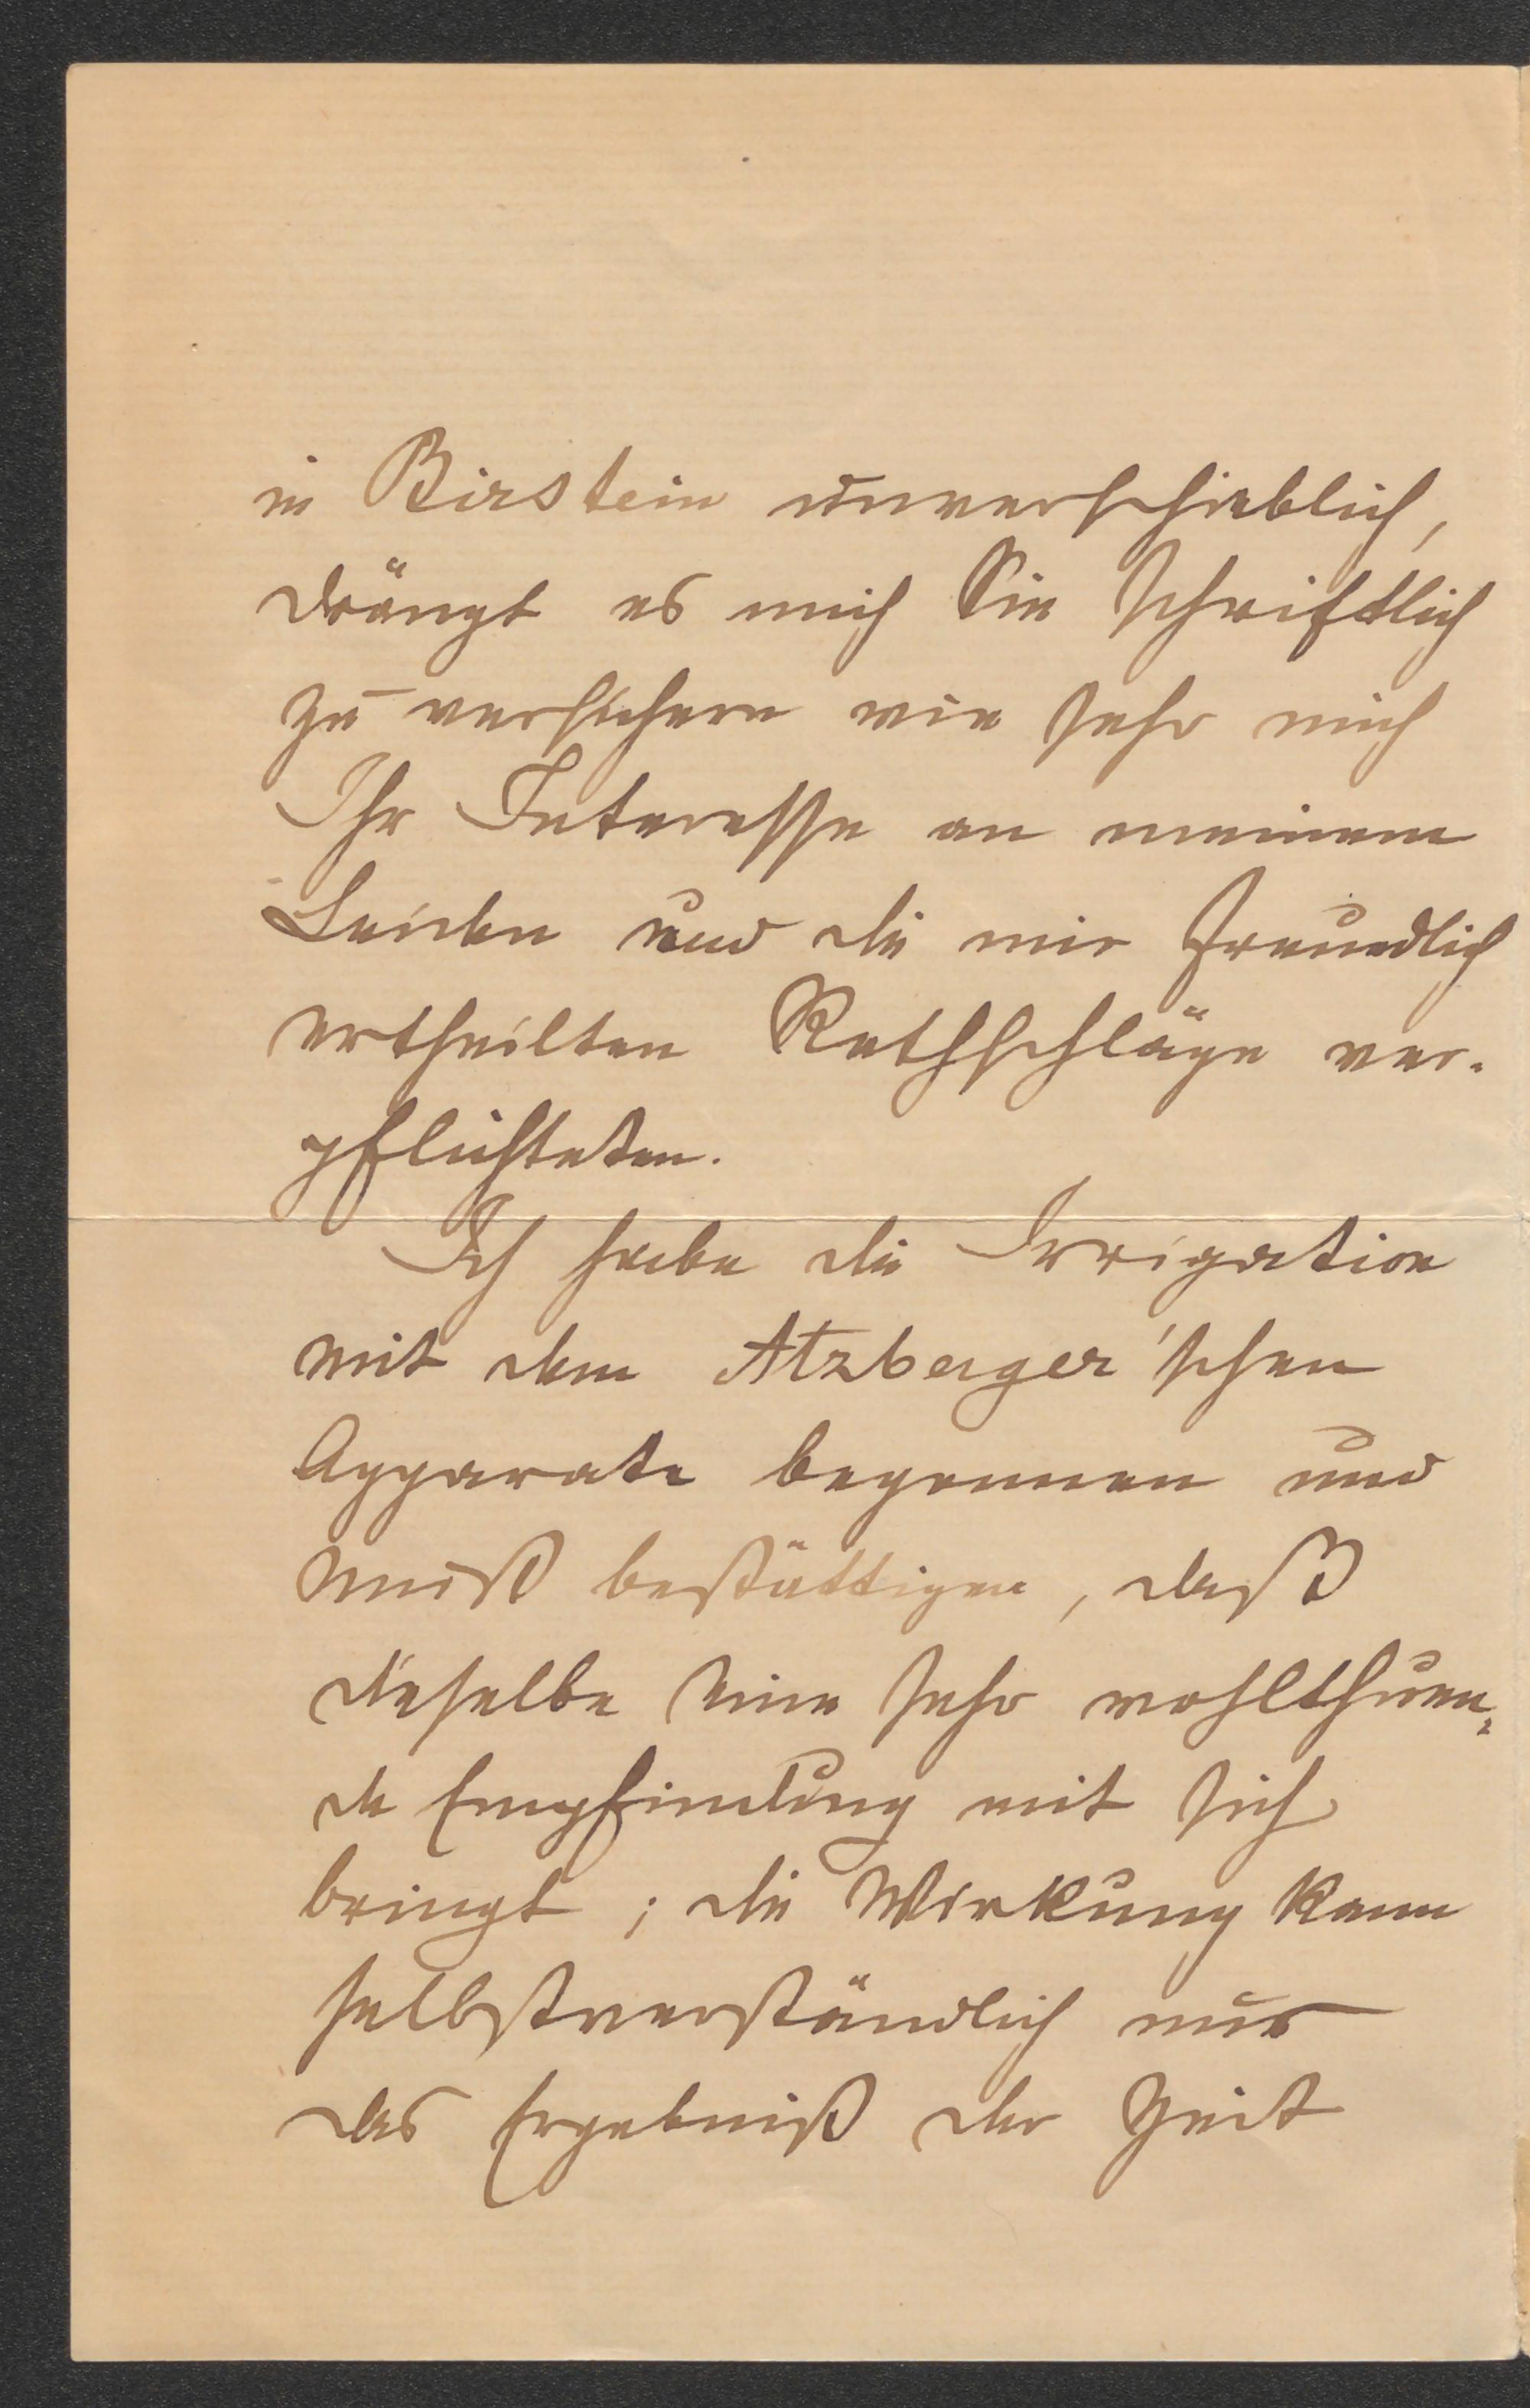 in Birstein unverschieblich,
drängt es mich Sie schriftlich
zu versichern wie sehr mich
Ihr Interesse an meinem
Leiden und die mir freundlich
ertheilten Rathschläge ver-
pflichteten.
Ich habe die Irrigation
mit dem Atzberger'schen
Apparate begonnen und
muß bestättigen, daß
dieselbe eine sehr wohlthuen-
de Empfindung mit sich
bringt; die Wirkung kann
selbstverständlich nur
das Ergebniß der Zeit